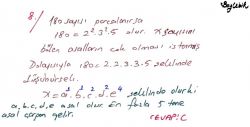 8./ 180 sayısı parçalanırsa
180 = 2².3².5 olur. x sayısını
bölen asalların çok olması istenmiş
Dolayısıyla 180 = 2.2.3.3.5 şeklinde
düşünülmeli.
x = a¹.b².c².d².e⁴ şeklinde olur ki
a, b, c, d, e asal olur. En fazla 5 tane
asal çarpan gelir.
CEVAP: C